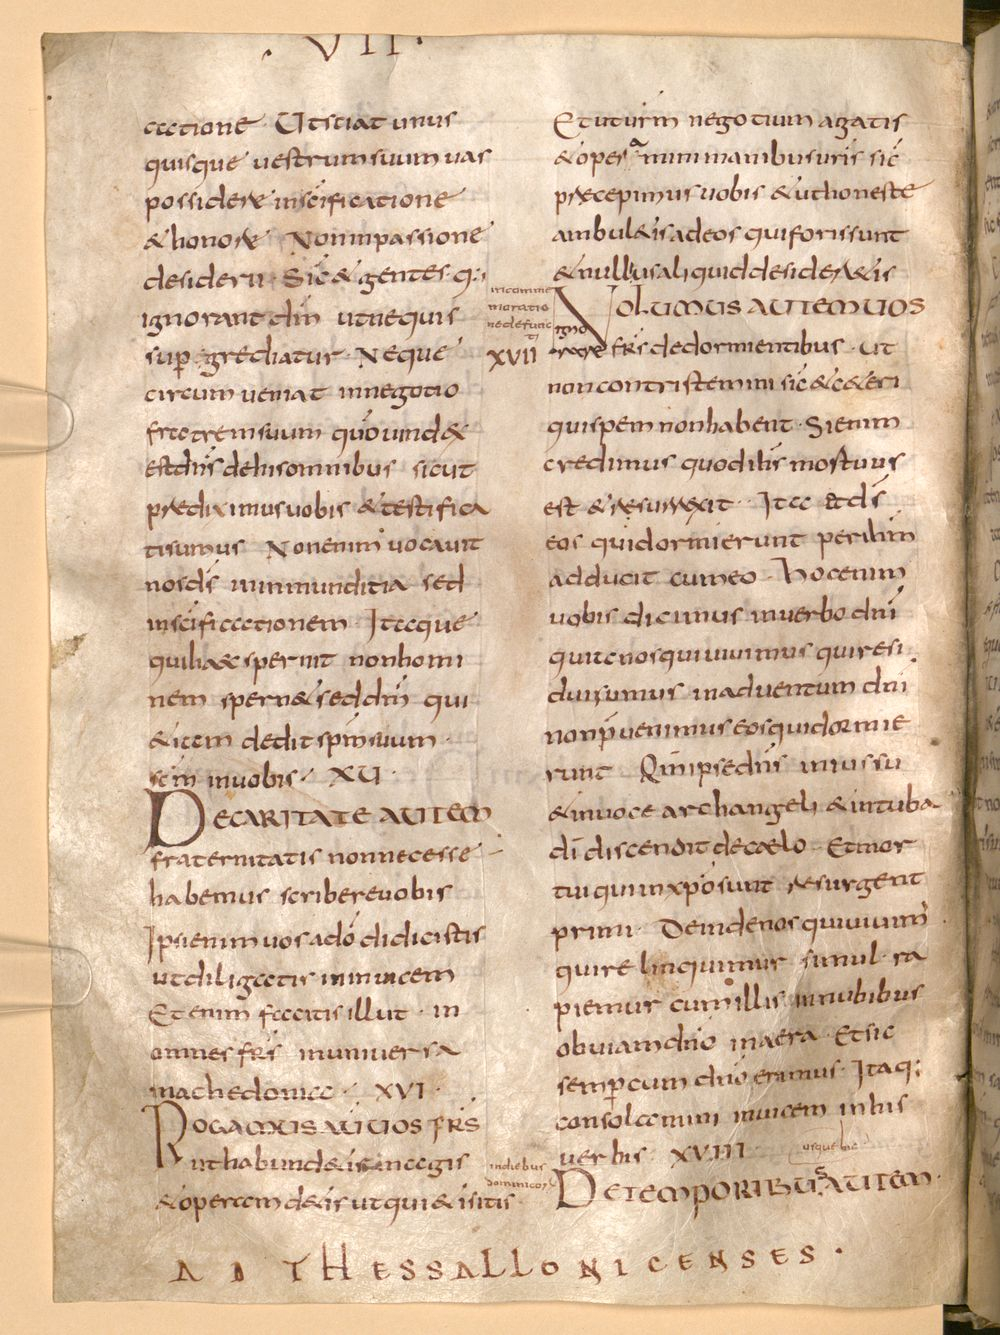 · VII ·
cctione · Ut sciat unus
quisque uestrum suum uas
possidere in scificatione
& honore Non in passione
desiderii · Sic & gentes q:;
ignorant dm̄ ut nequis
sup̱ grediatur · Neque
circum ueniat in negotio
fratrem suum quō uind&
est dn̄s de his omnibus sicut
prediximus uobis & testifica
ti sumus Non enim uocauit
nos ds̄ in inmunditia sed
in scificationem Itaque
qui haec spernit non homi
nem spern& sed dm̄ qui
&iam dedit spm̄ suum
scm̄ in uobis · XV ·
DE CARITATE AUTEM
fraternitatis non necesse
habemus scribere uobis
Ipsi enim uos a dō didicistis
ut diligatis inuicem
Et enim facitis illut · in
omnes frs̄ in uniuersa
machedonia · XVI ·
ROGAMUS AUT UOS FRS̄
ut habund&is magis
& operam d&is ut qui&i sitis
Et ut urm̄ negotium agatis
& operamini manibus uris̄ sic
precepimus uobis & ut honeste
ambul&is ad eos qui foris sunt
& nullius aliquid desider&is
in comme
moratio
ne defunc
ti
XVII
NOLUMUS AUTEM UOS
igno
rare frs̄ de dormientibus · ut
non contristemini sic & c&eri
qui spem non habent · Si enim
credimus quod ihs̄ mortuus
est & resurrexit · Ita & ds̄
eos qui dormierunt per ihm̄
adducit cum eo · Hoc enim
uobis dicimus in uerbo dnī
quia nos qui uiuimus qui resi
dui sumus in aduentum dnī
non p̄uenimus eos qui dormie
runt Qm̄ ipse dn̄s in iussu
& in uoce archangeli & in tuba
dī discendit de caelo · Et mor
tui qui in xpo sunt resurgent
primi · Deinde nos qui uiuim̄
qui relinquimur simul ra
piemur cum illis in nubibus
obuiam dnō in aera · Et sic
semp̱ cum dnō erimus · Itaq:;
consolamini inuicem in his
uerbis · XVIII
usque hic
in diebus
dominicor̄
DE TEMPORIBUS AUTEM ·
AD THESSALLONICENSES ·